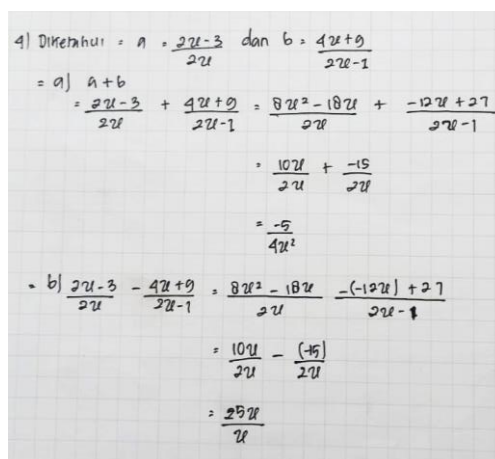 4) Diketahui = a = \frac{2x-3}{2x} dan b = \frac{4x+9}{2x-1}
= a) a+b
= \frac{2x-3}{2x} + \frac{4x+9}{2x-1} = \frac{8x² - 18x}{2x} + \frac{-12x + 27}{2x-1}
= \frac{10x}{2x} + \frac{-15}{2x}
= \frac{-5}{4x²}
= b) \frac{2x-3}{2x} - \frac{4x+9}{2x-1} = \frac{8x² - 18x}{2x} \frac{-(-12x) + 27}{2x-1}
= \frac{10x}{2x} - \frac{(-15)}{2x}
= \frac{25x}{x}